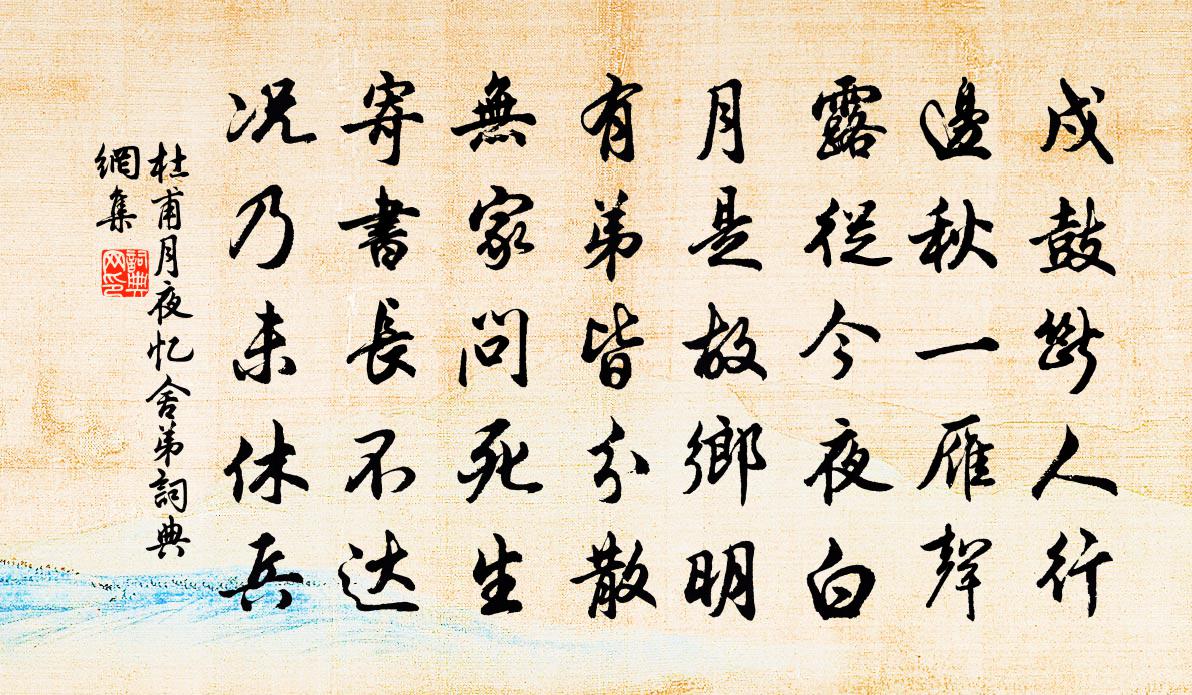 戍鼓斷人行
邊秋一雁聲
露從今夜白
月是故鄉明
有弟皆分散
無家問死生
寄書長不达
况乃未休兵
杜甫月夜忆舍弟詞典
網集
詞典
网印